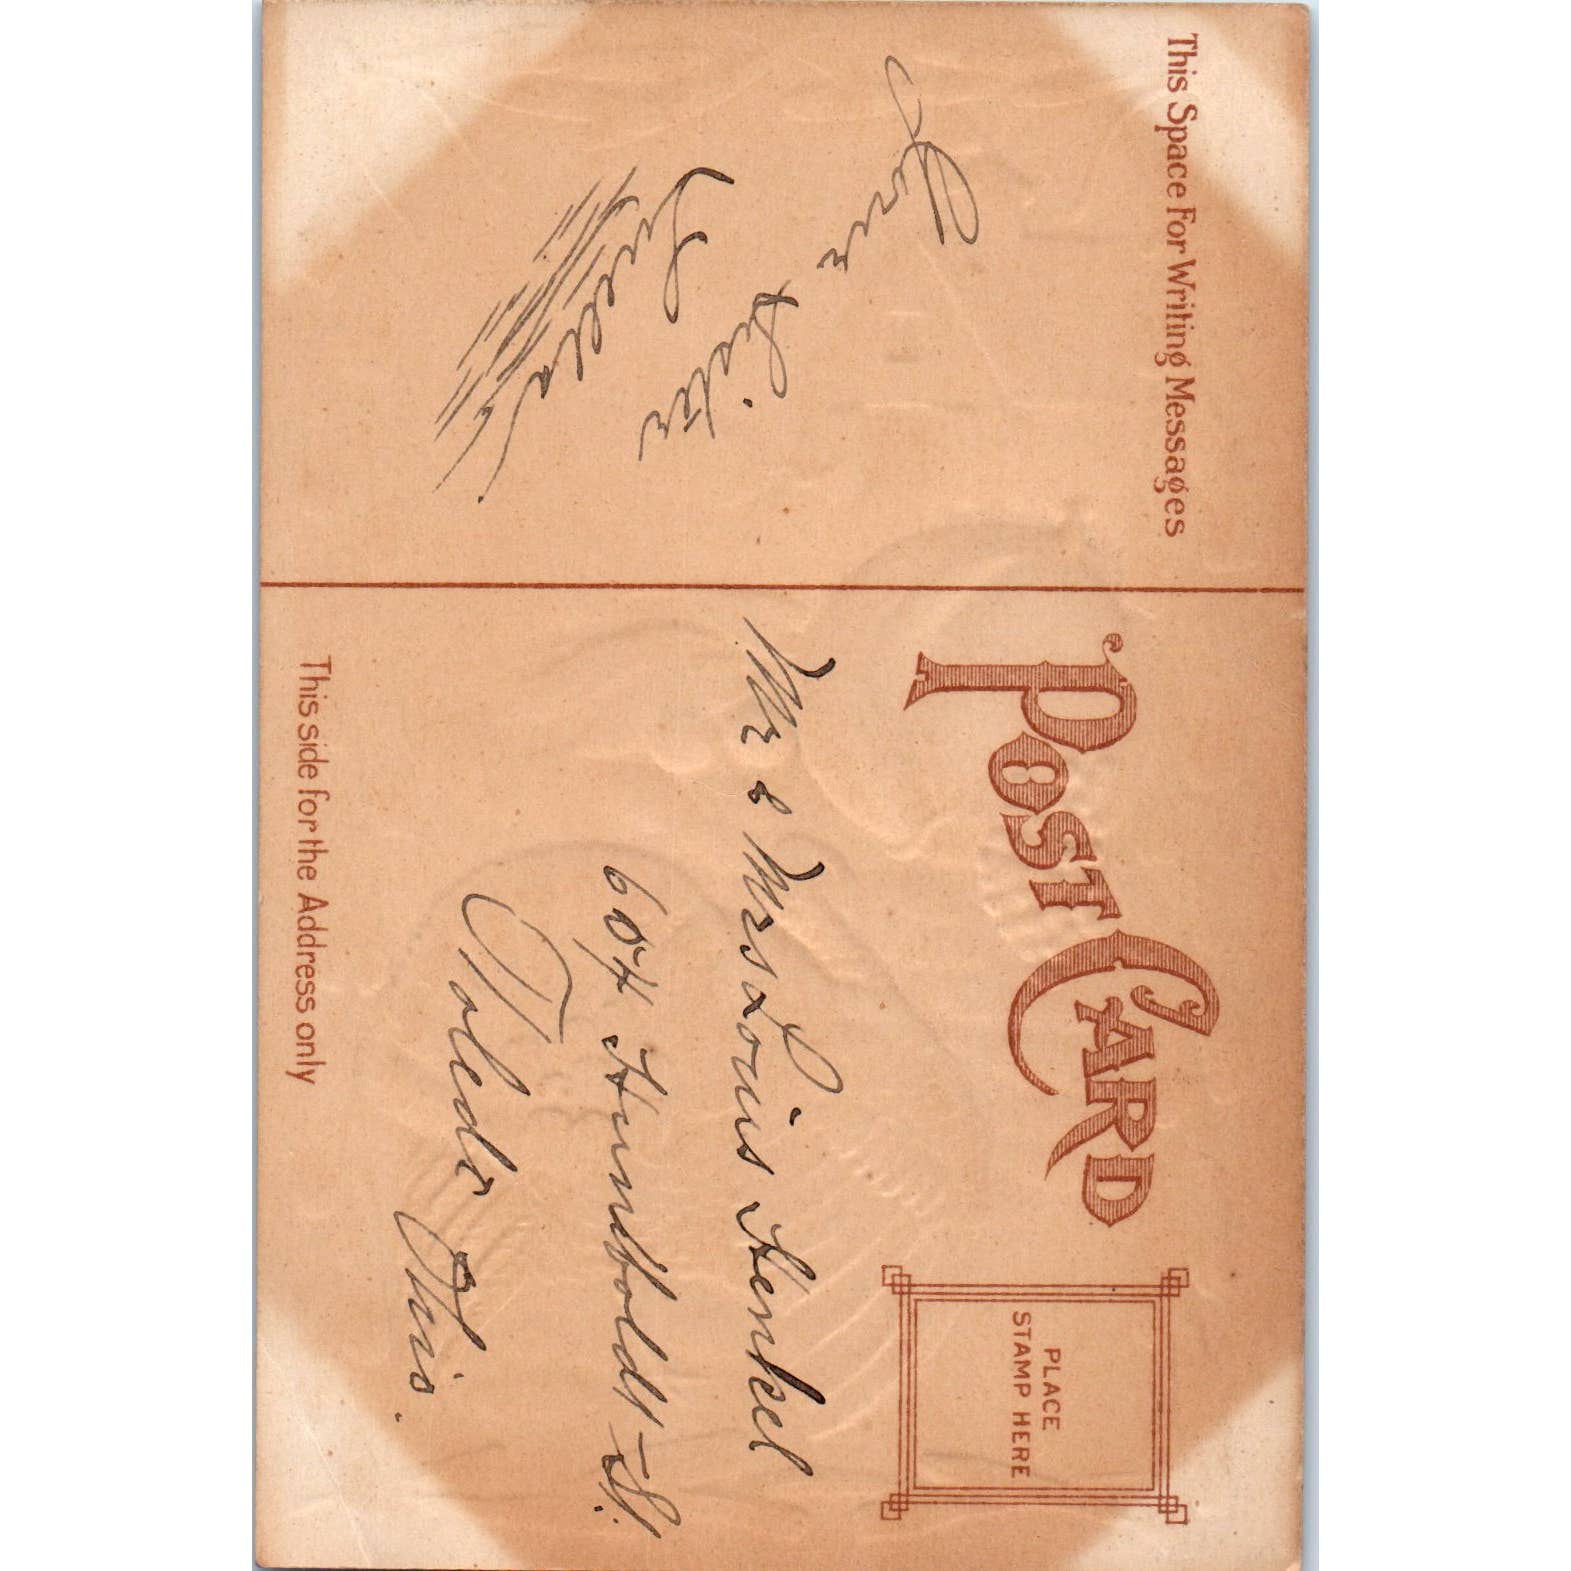 This Space For Writing Messages
Your
Sister
Luella
POST CARD
PLACE
STAMP HERE
Mr & Mrs Louis Henkel
604 Humboldt St.
Toledo Ohio.
This side for the Address only